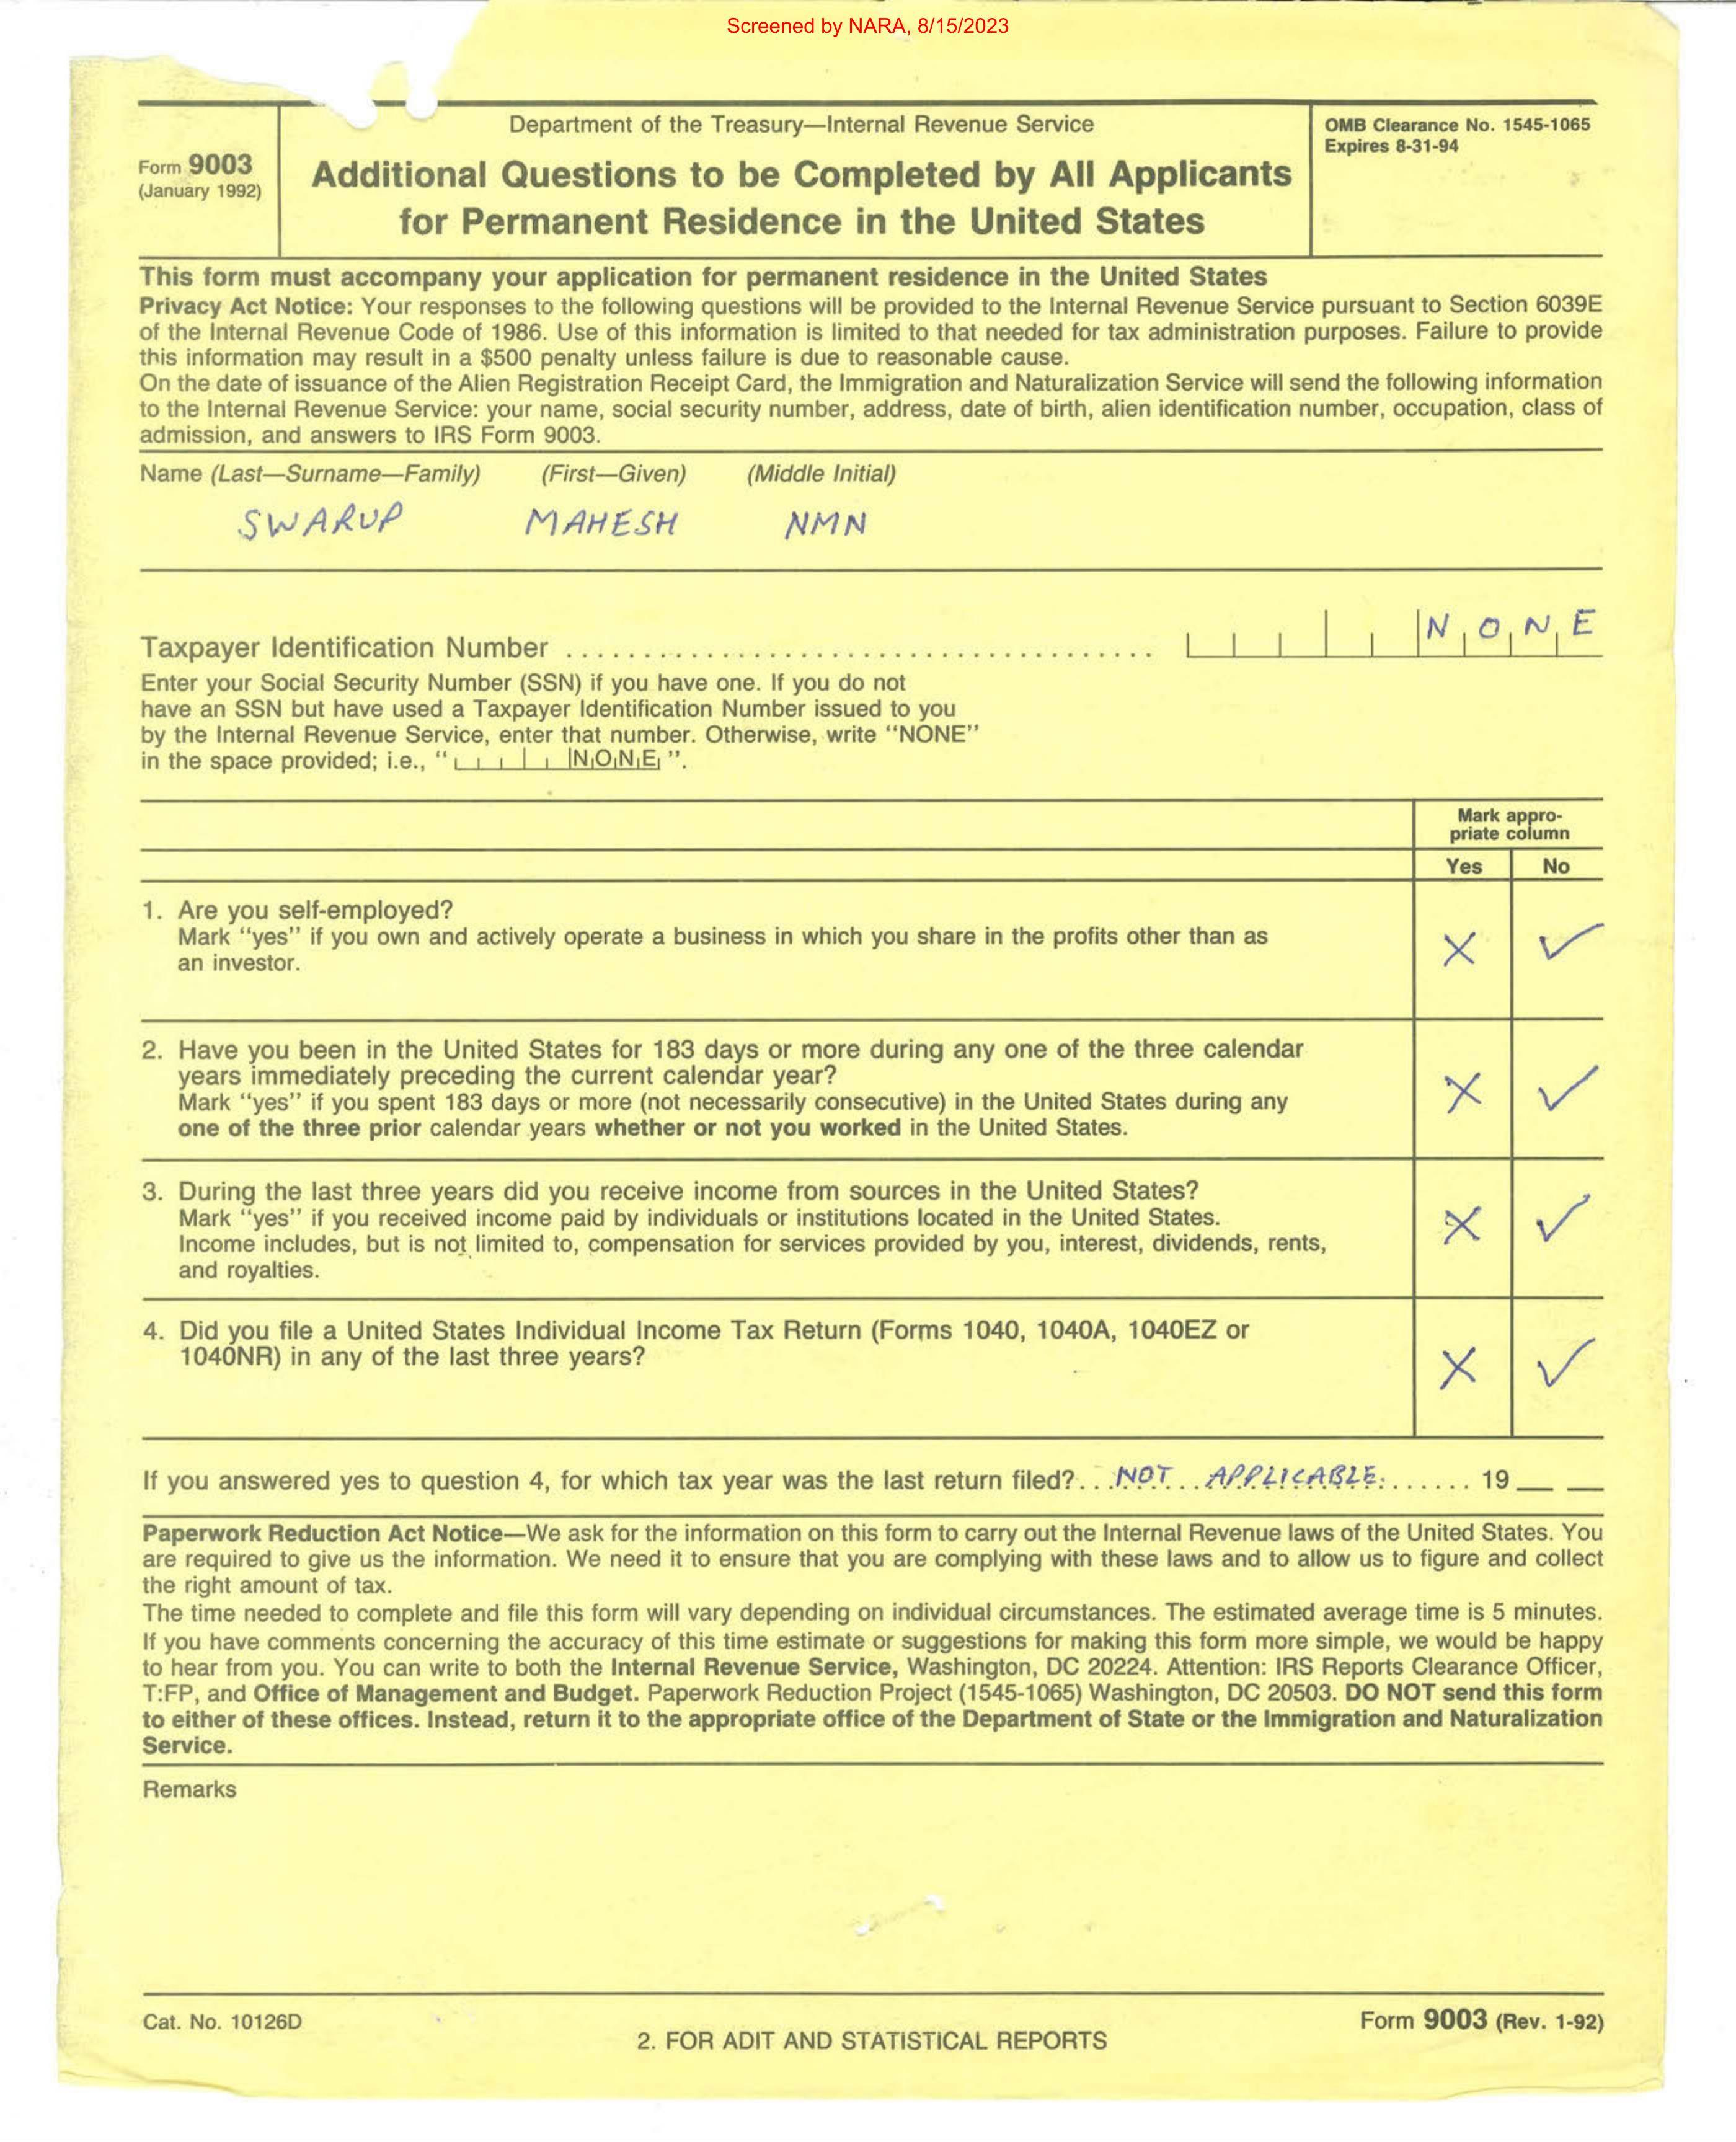 Screened by NARA, 8/15/2023
Department of the Treasury—Internal Revenue Service
OMB Clearance No. 1545-1065
Expires 8-31-94
Form 9003
(January 1992)
Additional Questions to be Completed by All Applicants
for Permanent Residence in the United States
This form must accompany your application for permanent residence in the United States
Privacy Act Notice: Your responses to the following questions will be provided to the Internal Revenue Service pursuant to Section 6039E
of the Internal Revenue Code of 1986. Use of this information is limited to that needed for tax administration purposes. Failure to provide
this information may result in a $500 penalty unless failure is due to reasonable cause.
On the date of issuance of the Alien Registration Receipt Card, the Immigration and Naturalization Service will send the following information
to the Internal Revenue Service: your name, social security number, address, date of birth, alien identification number, occupation, class of
admission, and answers to IRS Form 9003.
Name (Last—Surname—Family) (First—Given) (Middle Initial)
SWARUP MAHESH NMN
Taxpayer Identification Number NONE
Enter your Social Security Number (SSN) if you have one. If you do not
have an SSN but have used a Taxpayer Identification Number issued to you
by the Internal Revenue Service, enter that number. Otherwise, write "NONE"
in the space provided; i.e., "NONE".
Mark appro-
priate column
Yes No
1. Are you self-employed?
Mark "yes" if you own and actively operate a business in which you share in the profits other than as
an investor.
X ✓
2. Have you been in the United States for 183 days or more during any one of the three calendar
years immediately preceding the current calendar year?
Mark "yes" if you spent 183 days or more (not necessarily consecutive) in the United States during any
one of the three prior calendar years whether or not you worked in the United States.
X ✓
3. During the last three years did you receive income from sources in the United States?
Mark "yes" if you received income paid by individuals or institutions located in the United States.
Income includes, but is not limited to, compensation for services provided by you, interest, dividends, rents,
and royalties.
X ✓
4. Did you file a United States Individual Income Tax Return (Forms 1040, 1040A, 1040EZ or
1040NR) in any of the last three years?
X ✓
If you answered yes to question 4, for which tax year was the last return filed? NOT APPLICABLE. 19__ __
Paperwork Reduction Act Notice—We ask for the information on this form to carry out the Internal Revenue laws of the United States. You
are required to give us the information. We need it to ensure that you are complying with these laws and to allow us to figure and collect
the right amount of tax.
The time needed to complete and file this form will vary depending on individual circumstances. The estimated average time is 5 minutes.
If you have comments concerning the accuracy of this time estimate or suggestions for making this form more simple, we would be happy
to hear from you. You can write to both the Internal Revenue Service, Washington, DC 20224. Attention: IRS Reports Clearance Officer,
T:FP, and Office of Management and Budget. Paperwork Reduction Project (1545-1065) Washington, DC 20503. DO NOT send this form
to either of these offices. Instead, return it to the appropriate office of the Department of State or the Immigration and Naturalization
Service.
Remarks
Cat. No. 10126D
2. FOR ADIT AND STATISTICAL REPORTS
Form 9003 (Rev. 1-92)